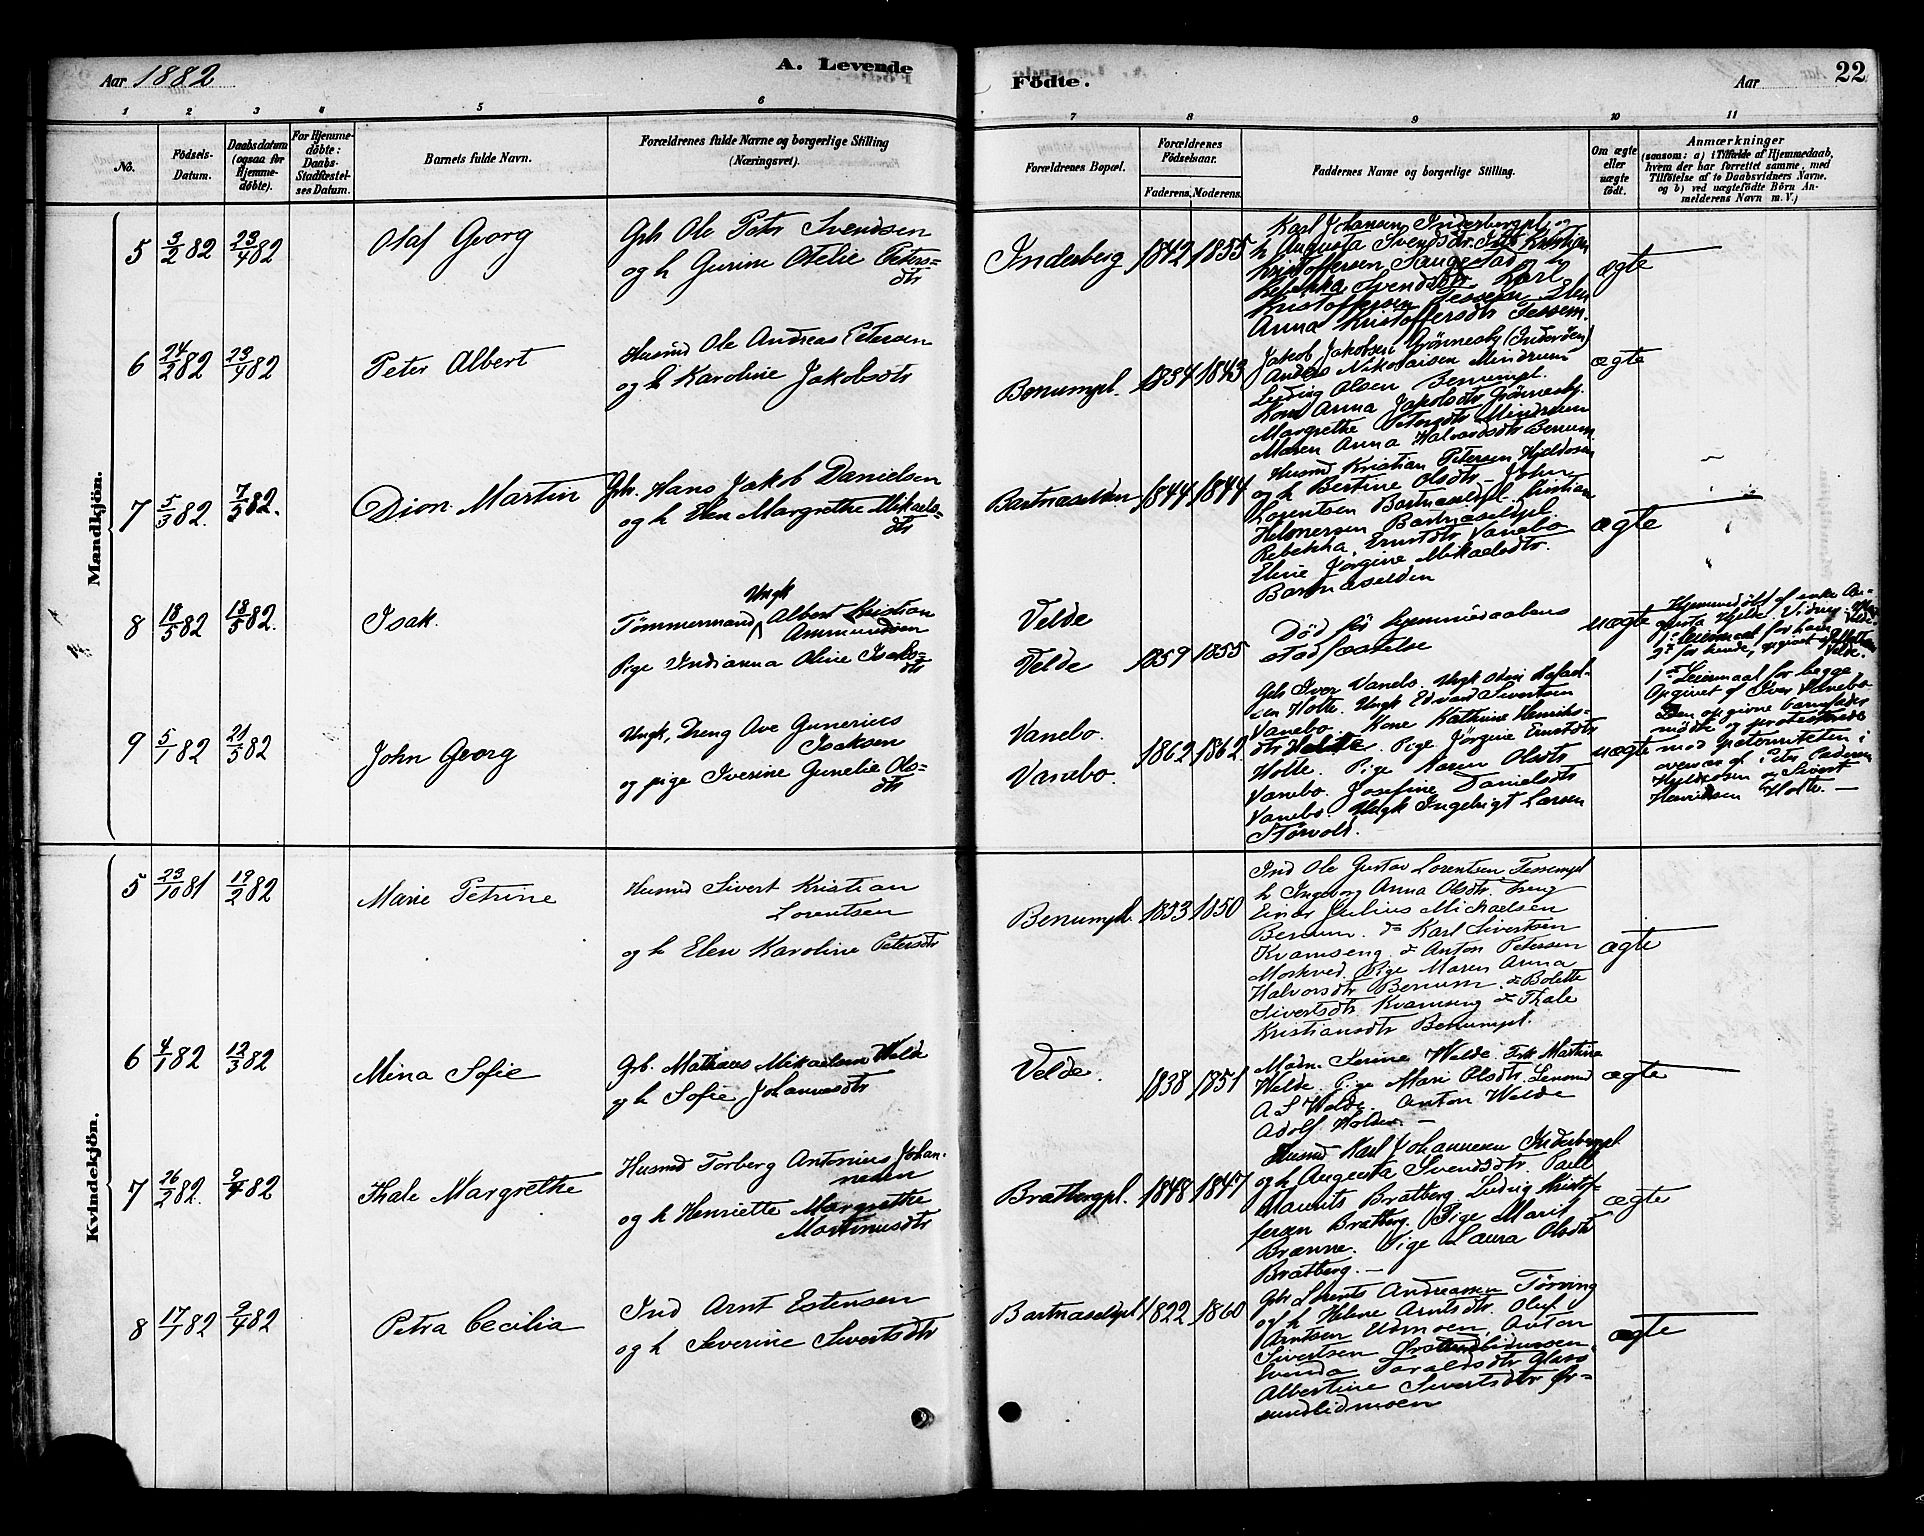 Aar 1882
A. Levende
Födte.
Aar
22
1 2 3 4 5 6 7 8 9 10 11
No.
Födsels-
Datum.
Daabsdatum
(ogsaa for
Hjemme-
döbte).
For Hjemme-
döbte:
Daabs-
Stadfæstel-
ses Datum.
Barnets fulde Navn.
Forældrenes fulde Navne og borgerlige Stilling
(Næringsvei).
Forældrenes Bopæl.
Forældrenes
Födselsaar.
Faderens. Moderens.
Faddernes Navne og borgerlige Stilling.
Om ægte
eller
uægte
födt.
Anmærkninger
(saasom: a) i Tilfælde af Hjemmedaab,
hvem der har forrettet samme, med
Tilföielse af to Daabsvidners Navne,
og b) ved uægtefödte Börn An-
melderens Navn m. V.)
Mandkjön.
5 3/2 82 23/4 82 Olaf Georg
Gbr Ole Peter Svendsen
og h Gurine Otelie Peters=
dtr
Inderberg 1842 1855
Karl Johansen Inderbergpl. og
h Augusta Svendsdtr. Kristian
Kristoffersen Saugestad og h
Rebekka Svendsdtr Karl
Kristoffersen Fessem Elen
Anna Kristoffersdtr Fessem.
ægte
6 24/2 82 23/4 82 Peter Albert
Husmd Ole Andreas Petersen
og h Karoline Jakobsdtr
Benumpl. 1834 1843
Jakob Jakobsen Grönnesby (Inderöen)
Anders Nikolaisen Mindrum
Ludvig Olsen Benumpl.
Kone Anna Jakobsdtr Grönnesby.
Margrethe Petersdtr Mindrum
Maren Anna Halvordsdtr Benum.
ægte
7 5/3 82. 7/5 82. Dion Martin
Gbr. Hans Jakob Danielsen
og h Elen Margrethe Mikaels=
dtr
Bartnaselden 1844 1844
Husmd Kristian Petersen Hjeldosen
og h Bertine Olsdtr. John
Lorentsen Bartnaseldpl. Kristian
Helmersen Bartnaseldpl.
Rebekka Ernstdtr Vanebo
Eline Jörgine Mikaelsdtr.
Bartnaselden
ægte
8 18/5 82 18/5 82. Isak.
Ungk
Tömmermand Albert Kristian
Ammundsen
Pige Indianna Oline Isaks=
dtr
Velde
Velde 1859 1855
Död för hjemmedaabens
stadfæstelse
uægte
Hjemmedöbt af enke Au-
gusta Velde.
1ste Leiermaal for ham
2det for hende, opgivet af
Velde.
9 5/1 82 21/5 82 John Georg
Ungk, Dreng Ave Gunerius
Isaksen
og pige Iverine Gunelie Ols=
dtr
Vanebo.
Vanebo. 1862 1862
Gbr Iver Vanebo. Ungk Odin Rafael-
sen Holte. Ungk Edvard Sivertsen
Vanebo. Kone Kathrine Henriks=
dtr Velde. Pige Jörgine Ernstdtr
Holte. Pige Karen Olsdtr
Vanebo. Josefine Danielsdtr
Vanebo. Ungk Ingebrigt Larsen
Störvold.
uægte
1ste Leiermaal for begge
Opgivet af Iver Vanebo
Den opgivne barnefader
mödte og protesterede
mod paterniteten i
overvær af Peter Pedersen
Hjeldosen og Sivert
Henriksen Holte. —
Kvindekjön.
5 23/10 81 19/2 82 Marie Petrine
Husmd Sivert Kristian
Lorentsen
og h Elen Karoline Petersdtr
Benumpl. 1853 1850
Ind Ole Gustav Lorentsen Fessempl
h Ingeborg Anna Olsdtr. Dreng
Einar Julius Michaelsen
Benum. do Karl Sivertsen
Kvamseng. do Anton Petersen
Moskved. Pige Maren Anna
Halvorsdtr Benum. do Bolette
Sivertsdtr Kvamseng do Thale
Kristiansdtr Benumpl.
ægte
6 4/1 82 12/3 82 Mina Sofie
Grb. Mathæus Mikaelsen Velde
og h Sofie Johannesdtr
Velde. 1838 1851
Madm. Serine Welde. Frk Martine
Welde. Pige Mari Olsdtr. Lensmd
A S Welde. Anton Welde
Adolf Holden. —
ægte
7 26/2 82. 9/4 82 Thale Margrethe
Husmd Torberg Antonius Johan-
nesen
og h Henriette Margrethe
Martinusdtr
Bratbergpl. 1848 1847
Husmd Karl Johannesen Inderbergpl
og h Augusta Svendsdtr. Paul
Maurits Bratberg. Ludvig Kristof-
fersen Bratberg. Pige Marit
Brænne. Pige Laura Olsdtr
Bratberg. —
ægte
8 17/1 82 9/4 82 Petra Cecilia
Ind Arnt Estensen
og h Severine Sivertsdtr
Bartnaseldpl 1822 1860
Gbr Lorents Andreassen Törring
og h Helene Arntsdtr. Oluf
Arntsen Udmoen Anton
Sivertsen Örsundlidmoen.
Svenda Taraldsdtr Glaes
Albertine Sivertsdtr Ör=
sundlidmoen
ægte